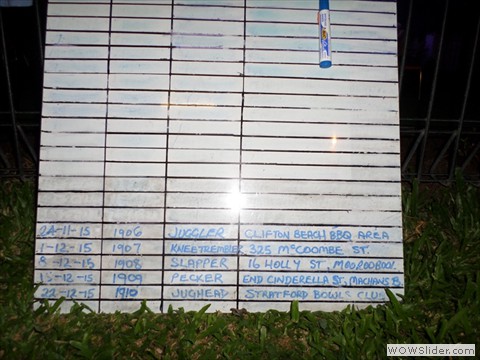 24-11-15 1906 JUGGLER CLIFTON BEACH BBQ AREA
1-12-15 1907 KNEETREMBLER 325 McCOOMBE ST.
8-12-15 1908 SLAPPER 16 HOLLY ST, MOOROOBOOL
15-12-15 1909 PECKER END CINDERELLA ST, MACHANS B.
22-12-15 1910 JUGHEAD STRATFORD BOWLS CLUB
WOWSlider.com